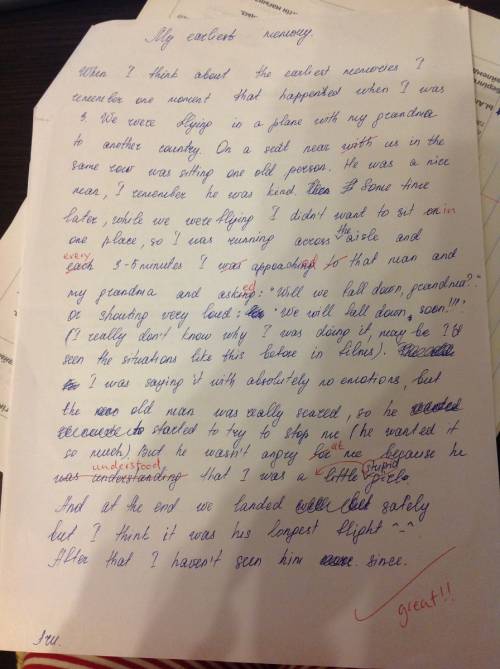 My earliest memory.
When I think about the earliest memories I
remember one moment that happened when I was
3. We were flying in a plane with my grandma
to another country. On a seat near with us in the
same row was sitting one old person. He was a nice
man, I remember he was kind. Some time
later, while we were flying I didn't want to sit on in
one place, so I was running across the aisle and
every
each 3-5 minutes I was approaching ed to that man and
my grandma and asking ed: "Will we fall down, grandma?"
or shouting very loud: "We will fall down, soon!!!"
(I really don't know why I was doing it, may be I
seen the situations like this before in films).
I was saying it with absolutely no emotions, but
the old man was really scared, so he
started to try to stop me (he wanted it
so much). But he wasn't angry for at me because he
understood
was understanding that I was a little stupid girl.
And at the end we landed safely
but I think it was his longest flight ^-^
After that I haven't seen him since.
great!!